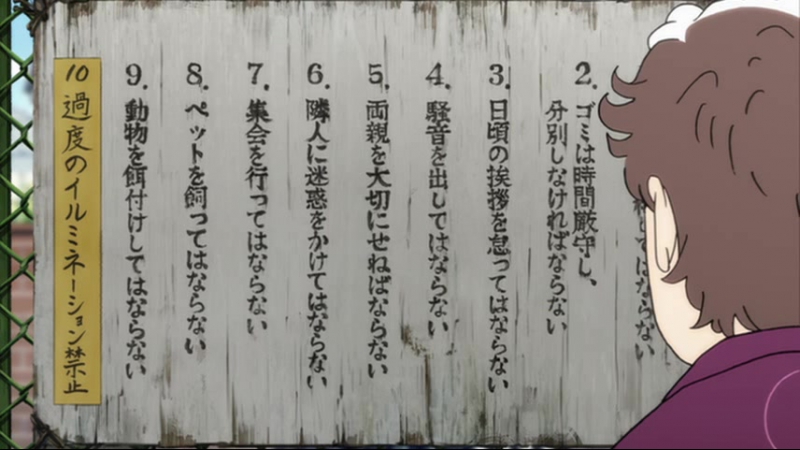 してはならない
2. ゴミは時間厳守し、
分別しなければならない
3. 日頃の挨拶を怠ってはならない
4. 騒音を出してはならない
5. 両親を大切にせねばならない
6. 隣人に迷惑をかけてはならない
7. 集会を行ってはならない
8. ペットを飼ってはならない
9. 動物を餌付けしてはならない
10 過度のイルミネーション禁止